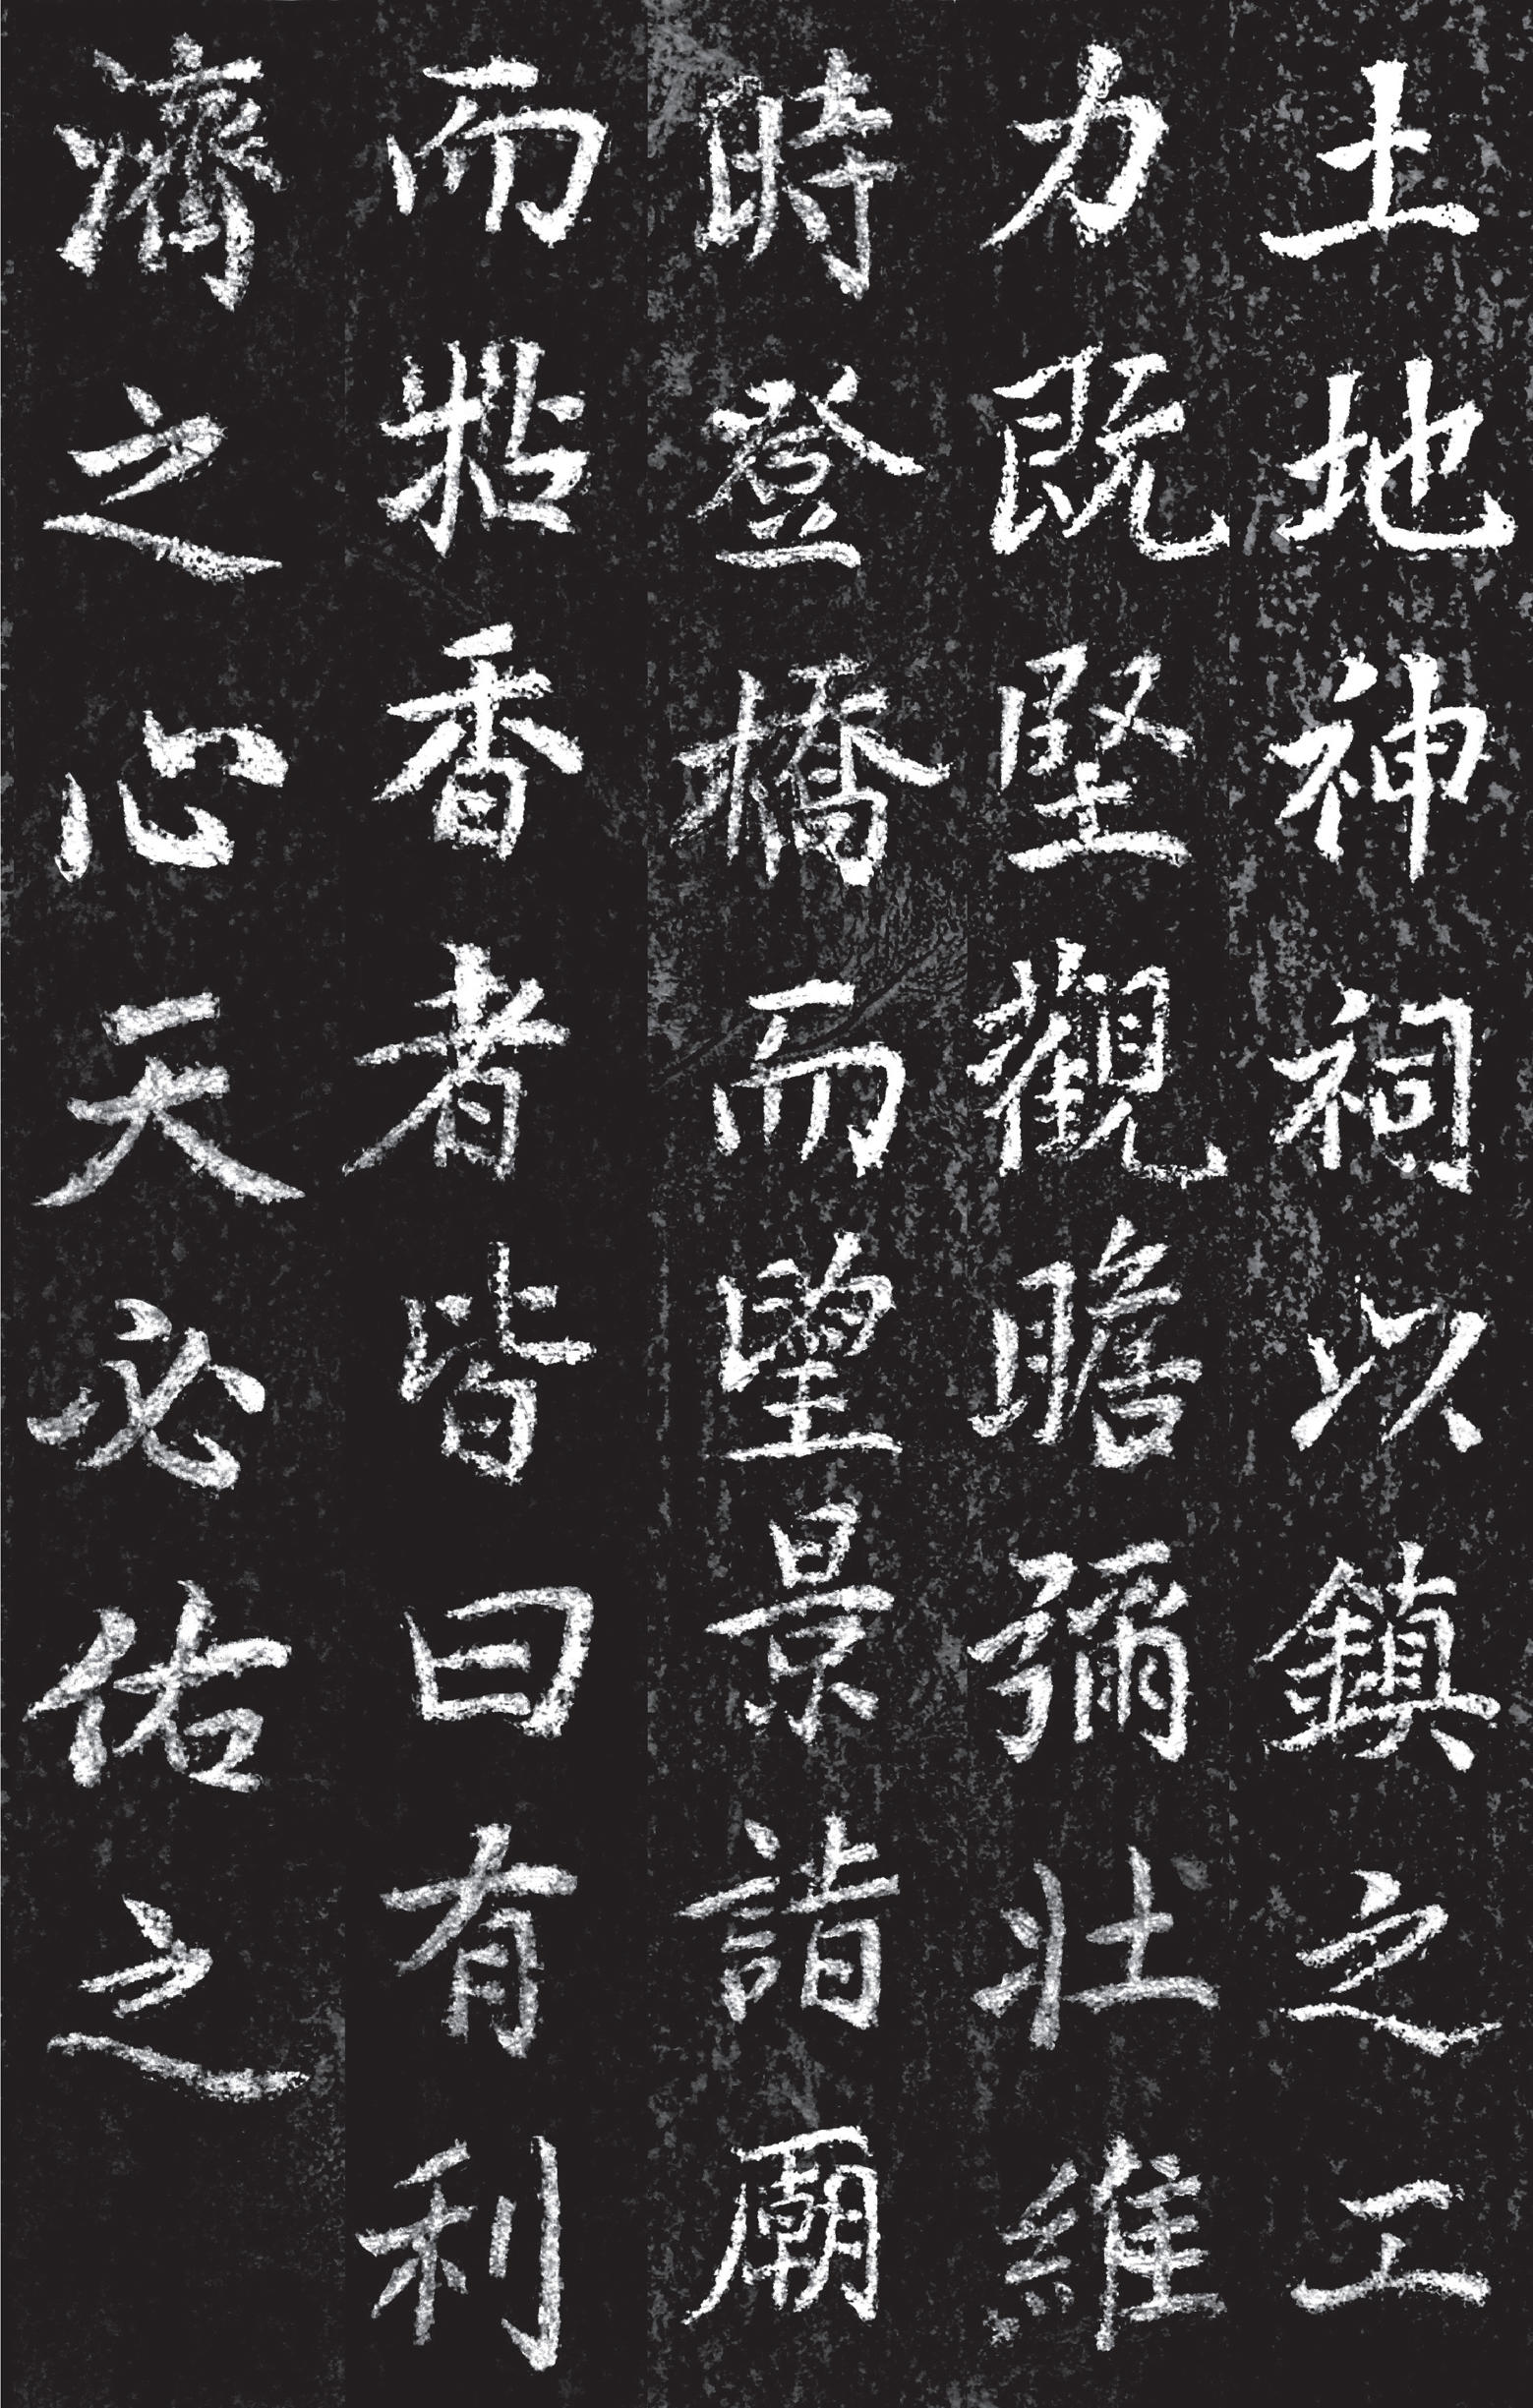 土地神祠以鎮之工
力既堅觀瞻彌壯維
時登橋而望景詣廟
而拈香者皆曰有利
濟之心天必佑之